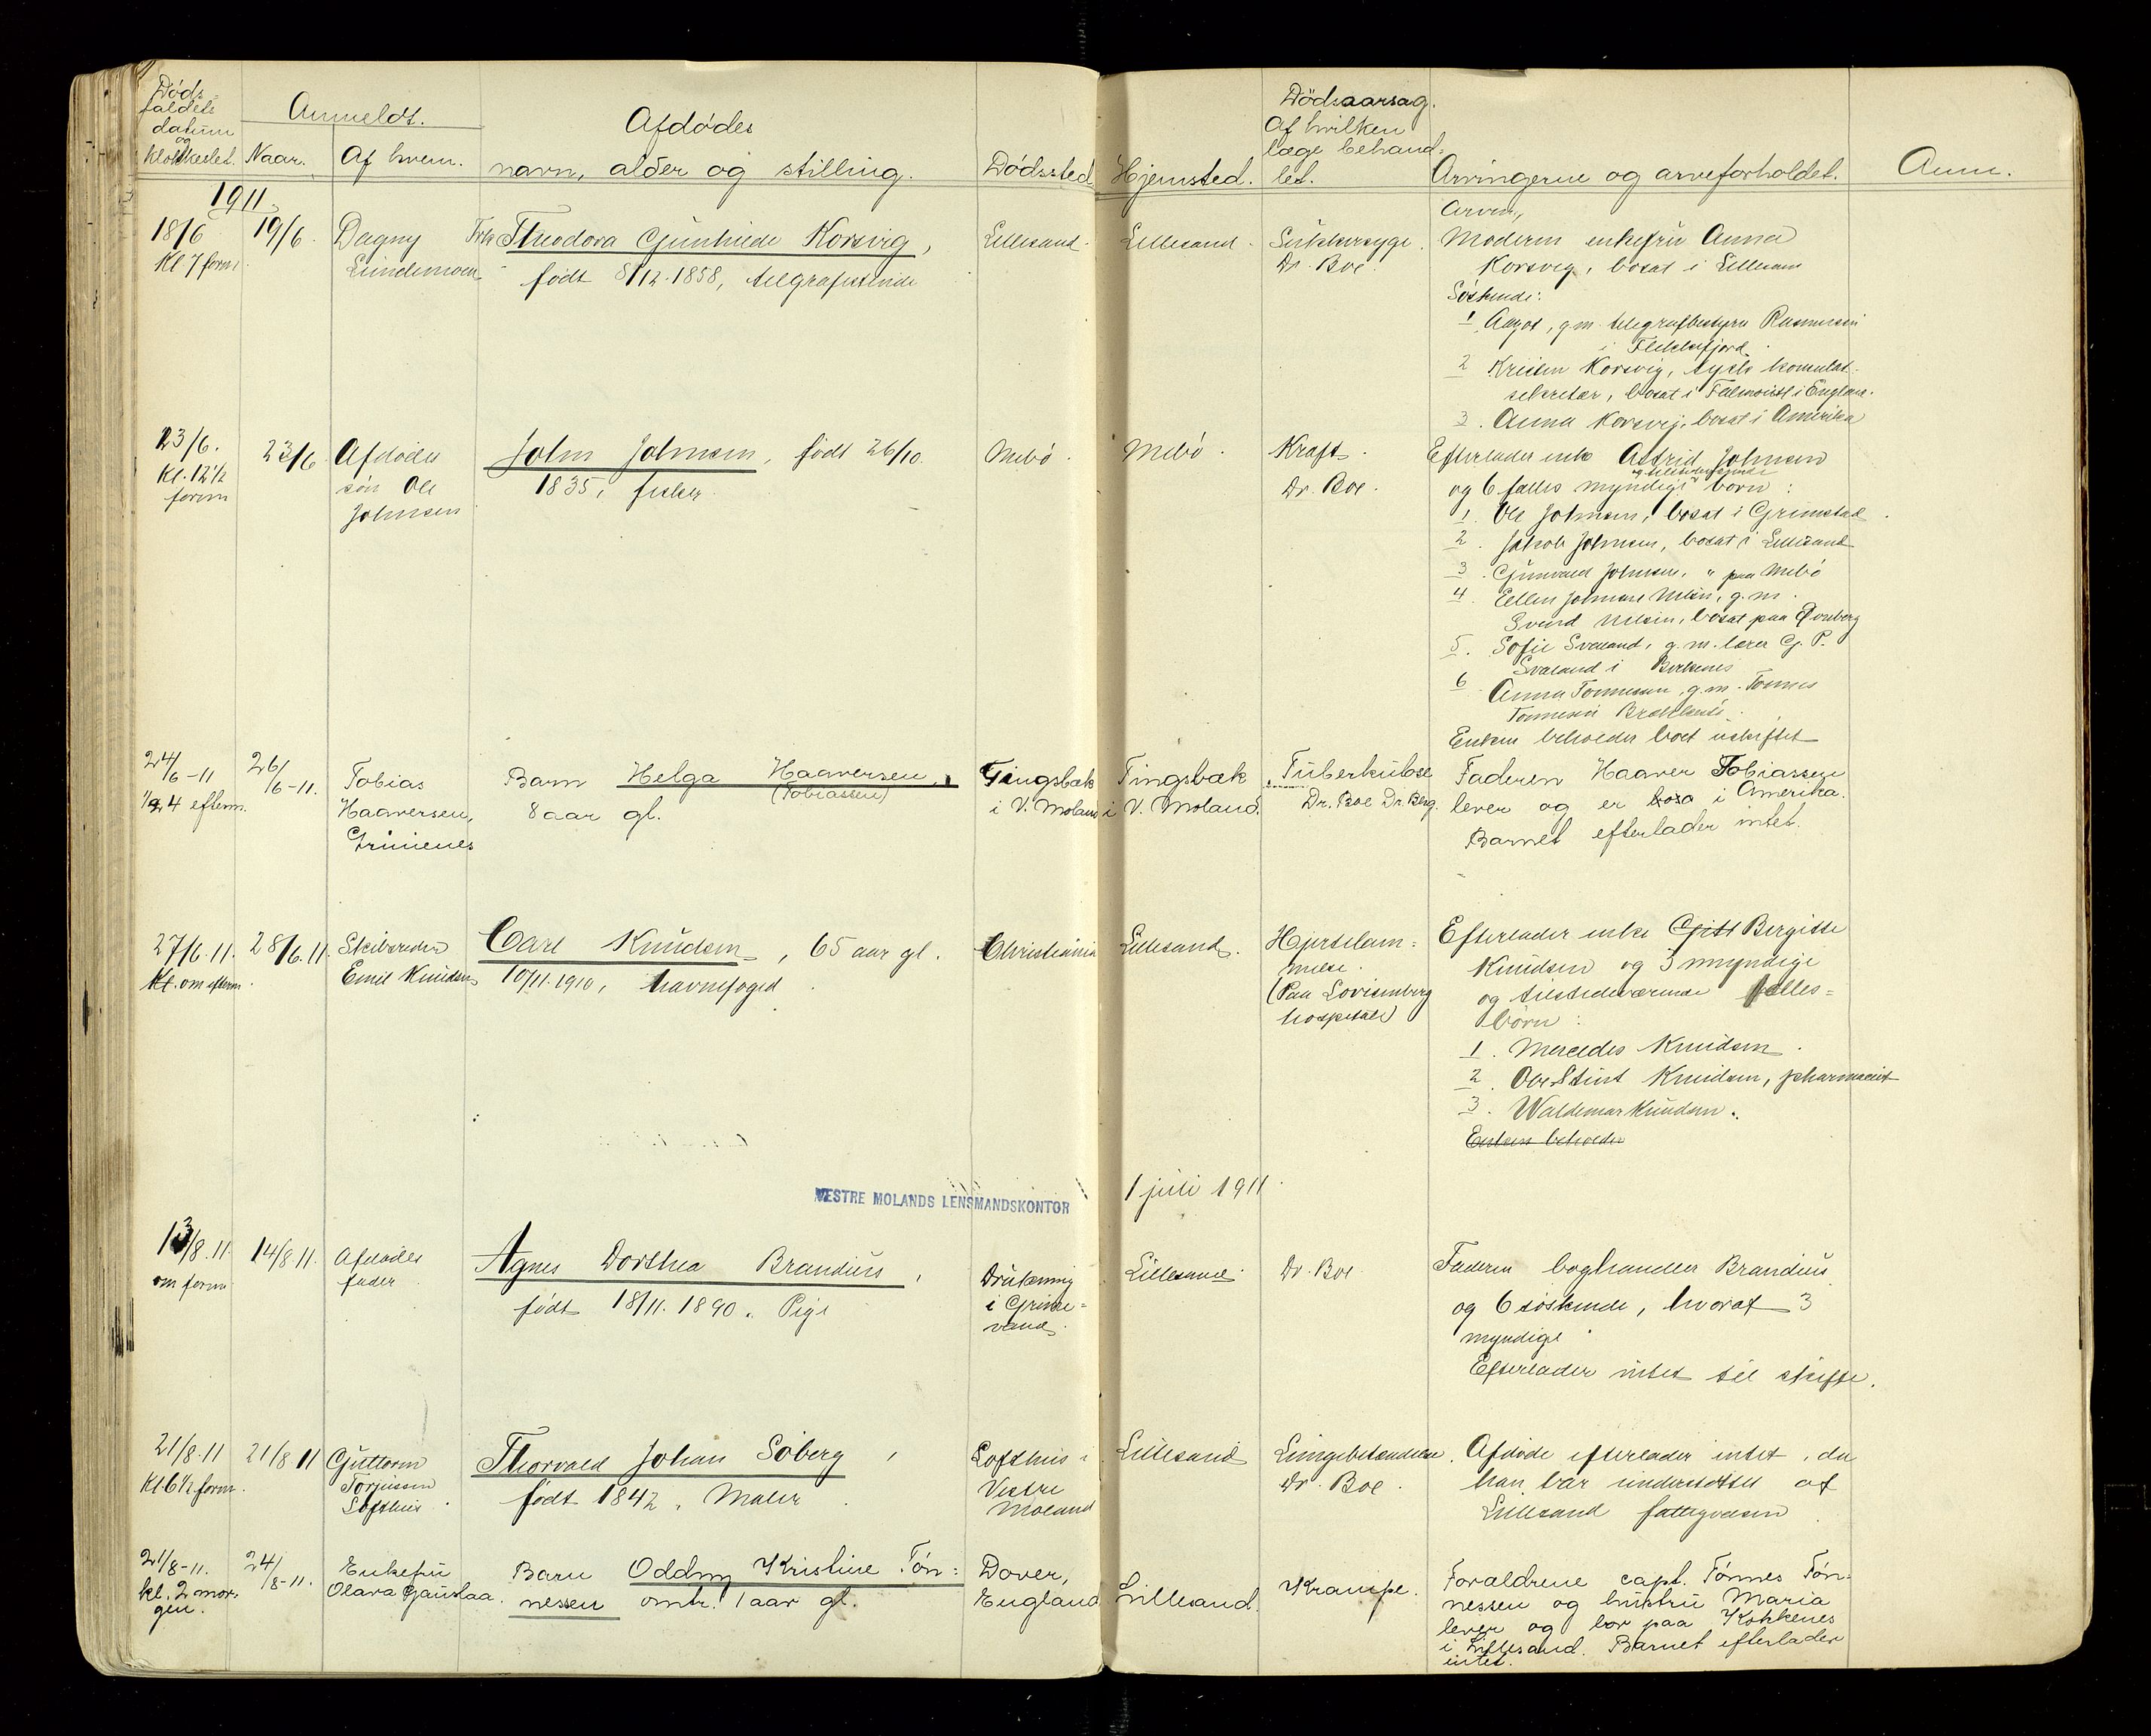 Døds-
faldets
datum
og
klokkeslet.
Anmeldt.
Naar.
Af hvem.
Afdødes
navn, alder og stilling.
Dødssted
Hjemsted.
Dödsaarsag.
Af hvilken
læge behand-
let.
Arvingerne og arveforholdet.
Anm.
1911.
18/6
Kl 7 form.
19/6.
Dagny
Lundemoen
Frk Theodora Gunhilde Korsvig,
født 8/12-1858, telegrafistinde
Lillesand.
Lillesand.
Sukkersyge.
Dr. Boe.
Arver,
Moderen enkefru Anna
Korsvig, bosat i Lillesand
Søskende:
1. Aagot, g.m. telegrafbestyrer Rasmussen
i Flekkefjord.
2 Kristen Korsvig, tysk konsulat-
sekretær, bosat i Falmouth i England.
3. Anna Korsvig, bosat i Amerika
23/6.
Kl. 12 1/2
form
23/6
Afdødes
søn Ole
Johnsen
John Johnsen, født 26/10.
1835, fisker
Mebö.
Mebö.
Kræft.
Dr. Boe.
Efterlader enke Astrid Johnsen
og tilstedeværende
og 6 fælles myndige børn:
1. Ole Johnsen, bosat i Grimstad.
2. Jakob Johnsen, bosat i Lillesand
3. Gunvald Johnsen, " paa Mebö
4. Ellen Johnsen Nilsen, g.m.
Svend Nilsen, bosat paa
5. Sofie Svaland, g.m. lærer G. P.
Svaland i Birkenes
6 Anna Tønnesen, g.m. Tønnes
Tønnesen Brækkestø.
Enken beholder boet uskiftet
24/6-11
1/2 4 efterm.
26/6-11.
Tobias
Haaversen,
Grimenes
Barn Helga Haaversen,
(Tobiassen)
8 aar gl.
Tingsbæk
i V. Moland
Tingsbæk
i V. Moland.
Tuberkulose
Dr. Boe Dr. Berg.
Faderen Haaver Tobiassen
lever og er bosa i Amerika.
Barnet efterlader intet.
27/6.11.
Kl. om efterm.
28/6.11.
Skibsreder
Emil Knudsen
Carl Knudsen, 65 aar gl.
10/11.1910, havnefoged.
Christiania
Lillesand.
Hjertelam-
melse.
(Paa Lovisenberg
hospital)
Efterlader enke Gitt Bergitte
Knudsen og 3 myndige
og tilstedeværende fælles-
børn:
1. Mercedes Knudsen.
2. Ole Stint Knudsen, pharmaceut
3. Waldemar Knudsen.
Enken beholder
VESTRE MOLANDS LENSMANDSKONTOR
1 juli 1911.
13/8.11.
om form
14/8.11.
Afdødes
fader.
Agnes Dorthea Brandius,
født 18/11.1890. Pige
Drukning
i Grime-
vand.
Lillesand.
Dr. Boe
Faderen boghandler Brandius
og 6 søskende, hvoraf 3
myndige.
Efterlader intet til skifte.
21/8.11
Kl. 6 1/2 form.
21/8 11
Guttorm
Torjussen
Lofthus.
Thorvald Johan Söberg,
født 1842. Maler.
Lofthus i
Vestre
Moland
Lillesand
Lungebetændelse.
Dr. Boe.
Afdøde efterlader intet, da
han var understøttet af
Lillesand fattigvæsen
21/8-11.
kl. 2 mor-
gen.
24/8-11.
Enkefru
Olava Gauslaa.
Barn Oddny Kristine Tøn-
nessen omtr. 1 aar gl.
Dover,
England
Lillesand.
Krampe.
Forældrene capt. Tønnes Tøn-
nessen og hustru Maria
lever og bor paa Kokkenes
i Lillesand. Barnet efterlader
intet.